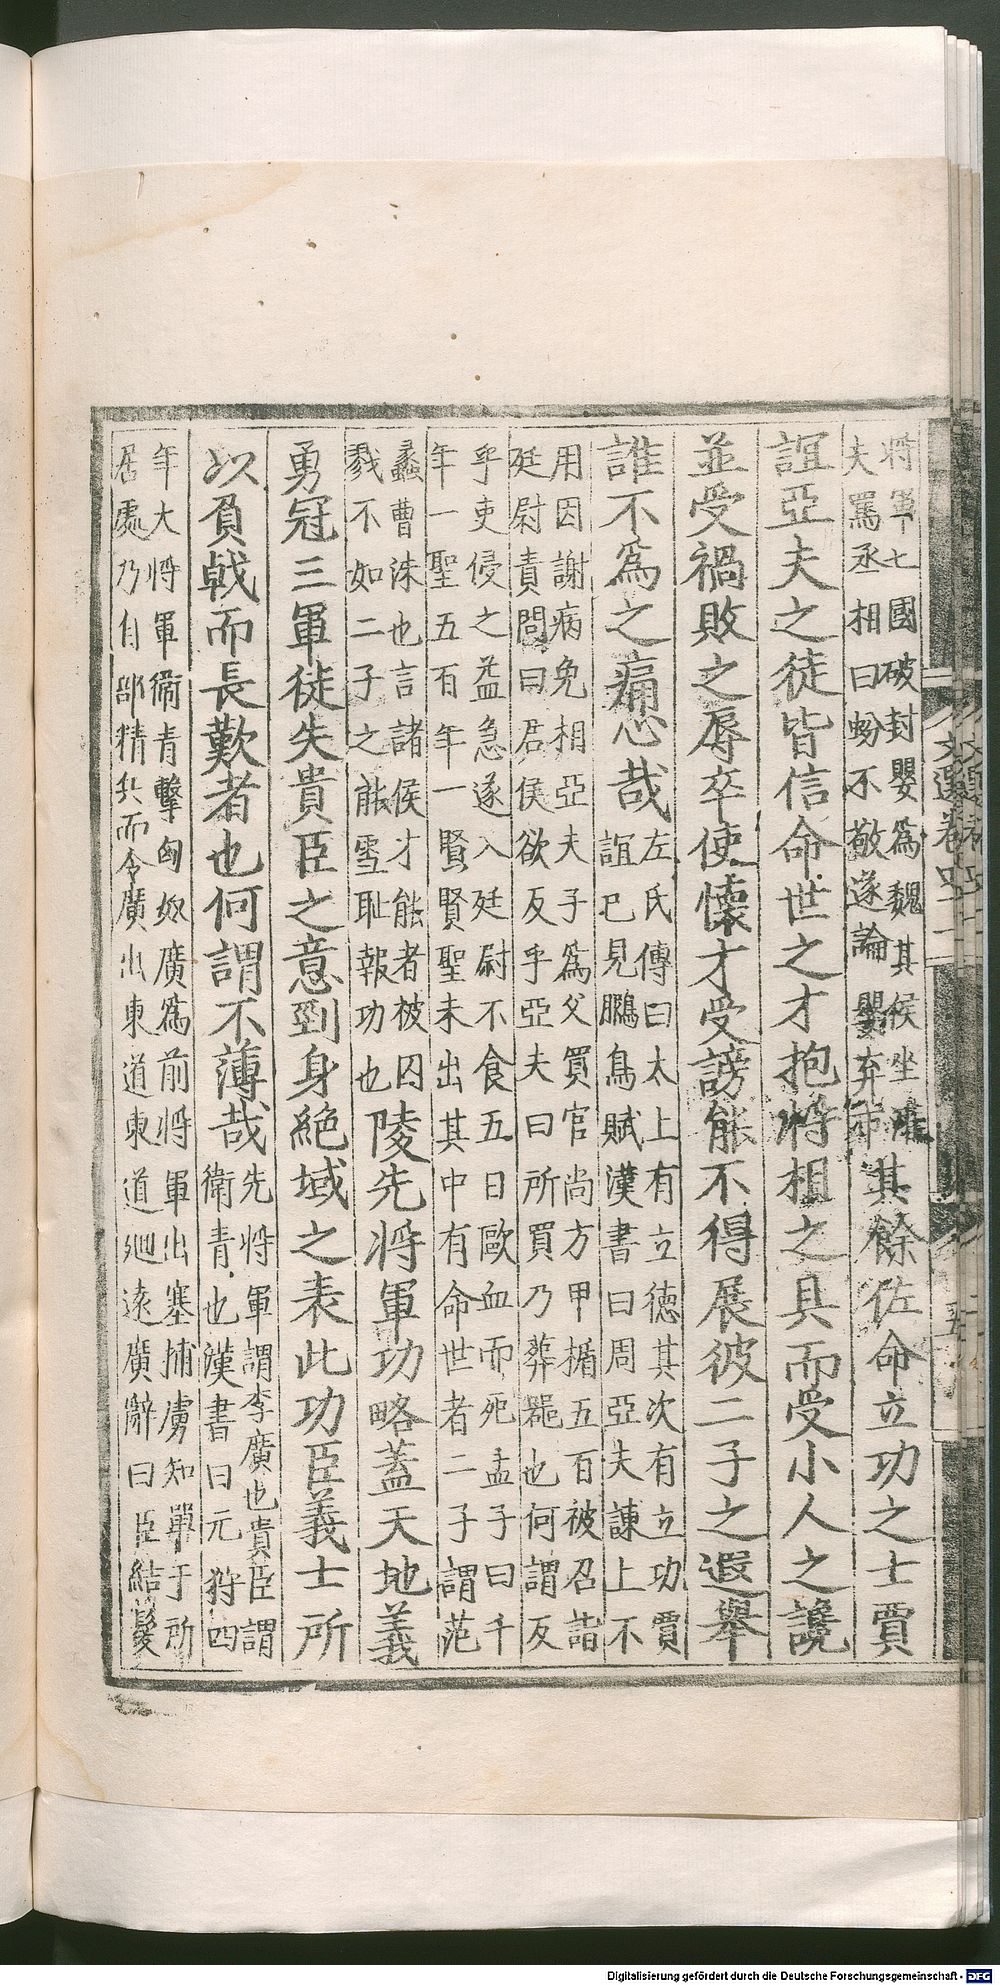 將軍七國破封嬰為魏其侯坐
夫罵丞相曰蚡不敬遂論嬰弃市
其餘佐命立功之士賈
誼亞夫之徒皆信命世之才抱將相之具而受小人之讒
並受禍敗之辱卒使懷才受謗能不得展彼二子之遐舉
誰不為之痛心哉
左氏傳曰太上有立德其次有立功賈
誼已見鵩鳥賦漢書曰周亞夫諫上不
用因謝病免相亞夫子為父買官尚方甲楯五百被召詣
廷尉責問曰君侯欲反乎亞夫曰所買乃葬器也何謂反
乎吏侵之益急遂入廷尉不食五日歐血而死孟子曰千
年一聖五百年一賢賢聖未出其中有命世者二子謂范
蠡曹沬也言諸侯才能者被囚
戮不如二子之能雪恥報功也
陵先將軍功略蓋天地義
勇冠三軍徒失貴臣之意剄身絕域之表此功臣義士所
以負戟而長歎者也何謂不薄哉
先將軍謂李廣也貴臣謂
衛青也漢書曰元狩四
年大將軍衛青擊匈奴廣為前將軍出塞捕虜知單于所
居處乃自部精兵而令廣出東道東道迴遠廣辭曰臣結髮
文選卷四十一
五
Digitalisierung gefördert durch die Deutsche Forschungsgemeinschaft - DFG